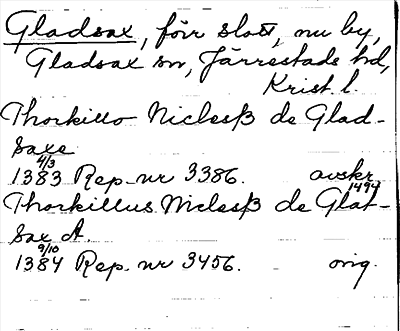 Gladsax, förr slott, nu by,
Gladsax sn, Järrestads hd,
Krist. l.
Thorkillo Niclesß de Glad-
saxe
4/3
1383 Rep. nr 3386. avskr
1494
Thorkillus Niclesß de Glat-
sax A.
9/10
1384 Rep. nr 3456. orig.